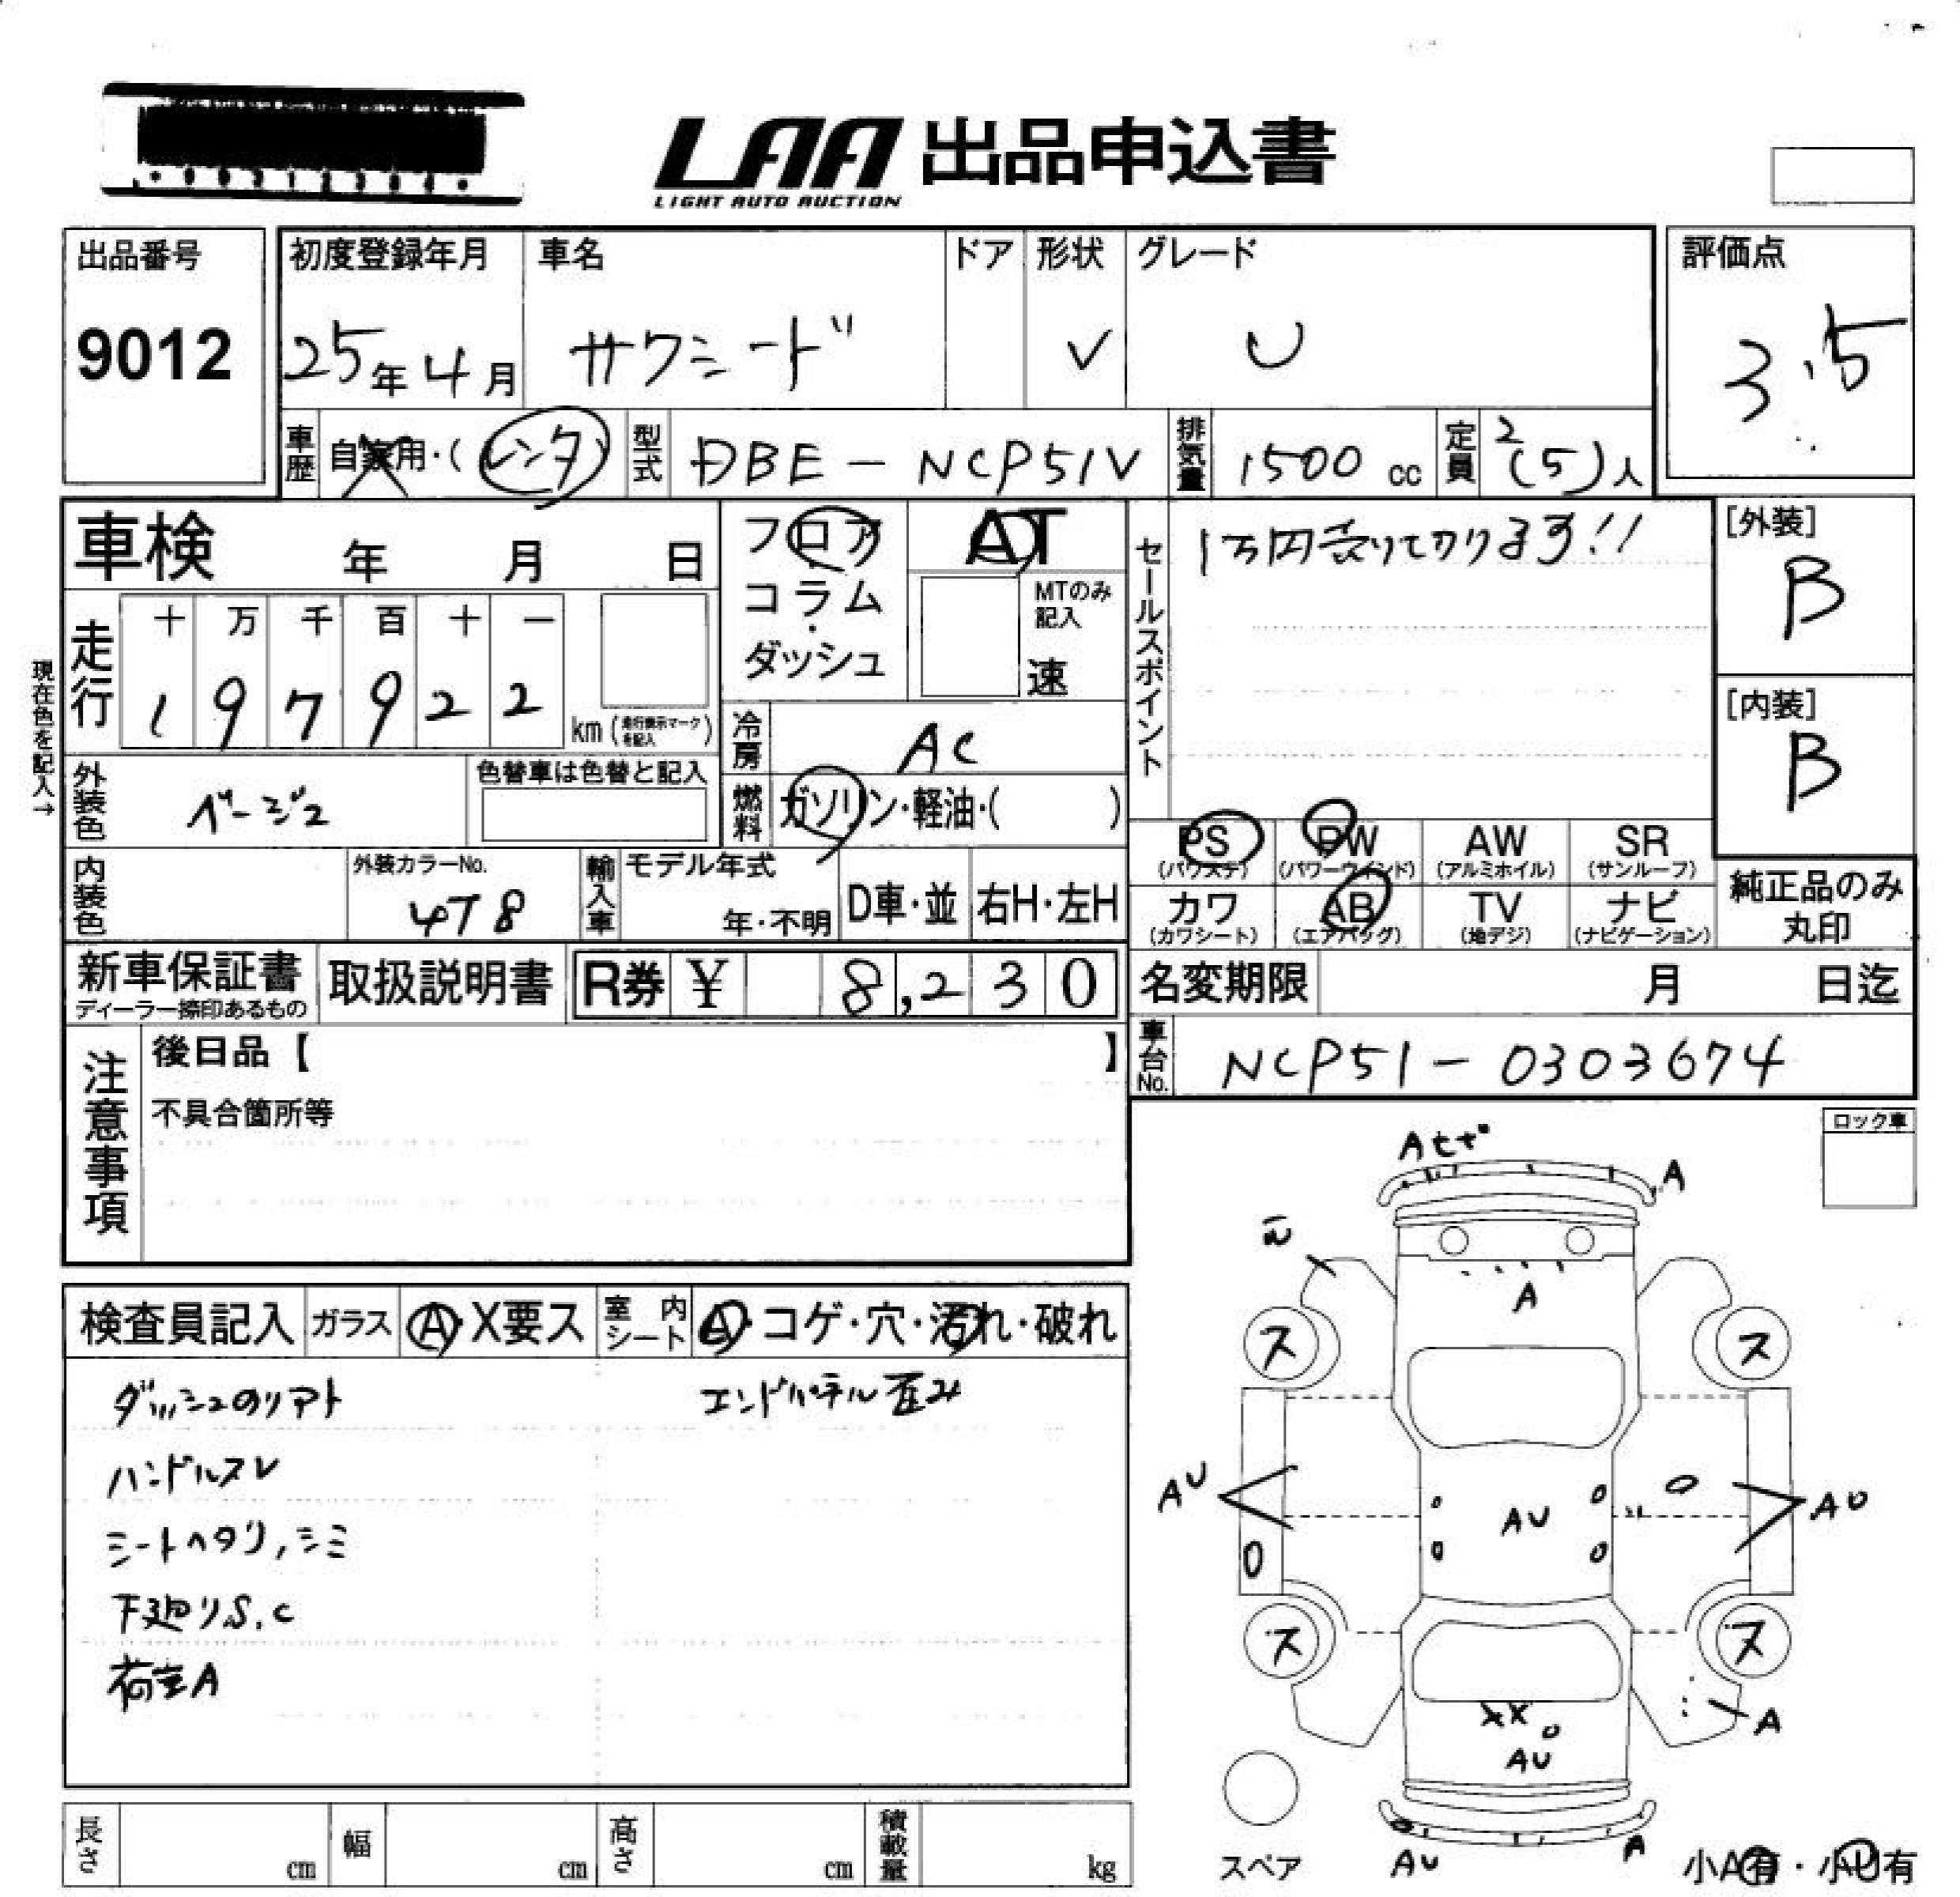 LAA 出品申込書
LIGHT AUTO AUCTION
出品番号
9012
初度登録年月
25年4月
車名
サクシード
ドア
形状
V
グレード
U
評価点
3.5
車歴
自家用・(レンタ)
型式
DBE-NCP51V
排気量
1500 cc
定員
2(5)人
車検 年 月 日
現在色を記入→
走行
十 万 千 百 十 一
1 9 7 9 2 2
km(走行表示マークを記入)
フロア
コラム
・
ダッシュ
AT
MTのみ記入
速
冷房
AC
燃料
ガソリン・軽油・( )
外装色
ベージュ
色替車は色替と記入
内装色
外装カラーNo.
4T8
輸入車
モデル年式
年・不明
D車・並
右H・左H
セールスポイント
1万円売りてかります!!
[外装]
B
[内装]
B
PS
(パワステ)
PW
(パワーウインド)
AW
(アルミホイル)
SR
(サンルーフ)
カワ
(カワシート)
AB
(エアバッグ)
TV
(地デジ)
ナビ
(ナビゲーション)
純正品のみ
丸印
新車保証書
ディーラー捺印あるもの
取扱説明書
R券 ¥ 8,230
名変期限 月 日迄
車台No.
NCP51-0303674
注意事項
後日品【 】
不具合箇所等
ロック車
検査員記入
ガラス
A・X要ス
室内シート
A・コゲ・穴・汚れ・破れ
ダッシュのリアト
ハンドルスレ
シートヘタリ,シミ
下廻りS.C
荷室A
エンドパネル歪み
A
A
ス
ス
AU
AU
AU
ス
ス
XX
A
AU
AU
A
スペア
小A有・小U有
長さ cm
幅 cm
高さ cm
積載量 kg